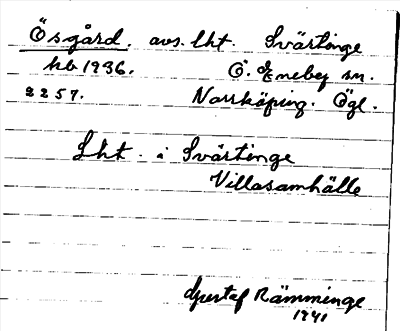 Ösgård. avs. lht. Svärtinge
hb 1936. Ö. Eneby sn.
2257. Norrköping. Ögl.
Lht. i Svärtinge
Villasamhälle
Gustaf Rämminge
1941